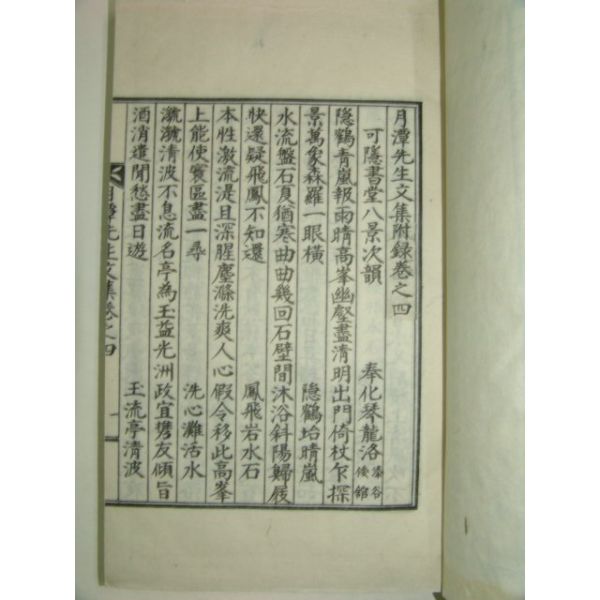 月潭先生文集附錄卷之四
可隱書堂八景次韻 奉化琴龍洛
隱鶴青嵐報雨晴高峯幽壑盡清明出門倚杖乍探
景萬象森羅一眼橫 隱鶴坮晴嵐
水流盤石夏猶寒曲曲幾回石壁間沐浴斜陽歸屐
快還疑飛鳳不知還 鳳飛岩水石
本性激流湜且深腥塵滌洗爽人心假令移此高峯
上能使寰區盡一尋 洗心灘活水
㶑㶑清波不息流名亭為玉益光洲政宜携友傾旨
酒消遣閒愁盡日遊 玉流亭清波
月潭先生文集卷之四 一